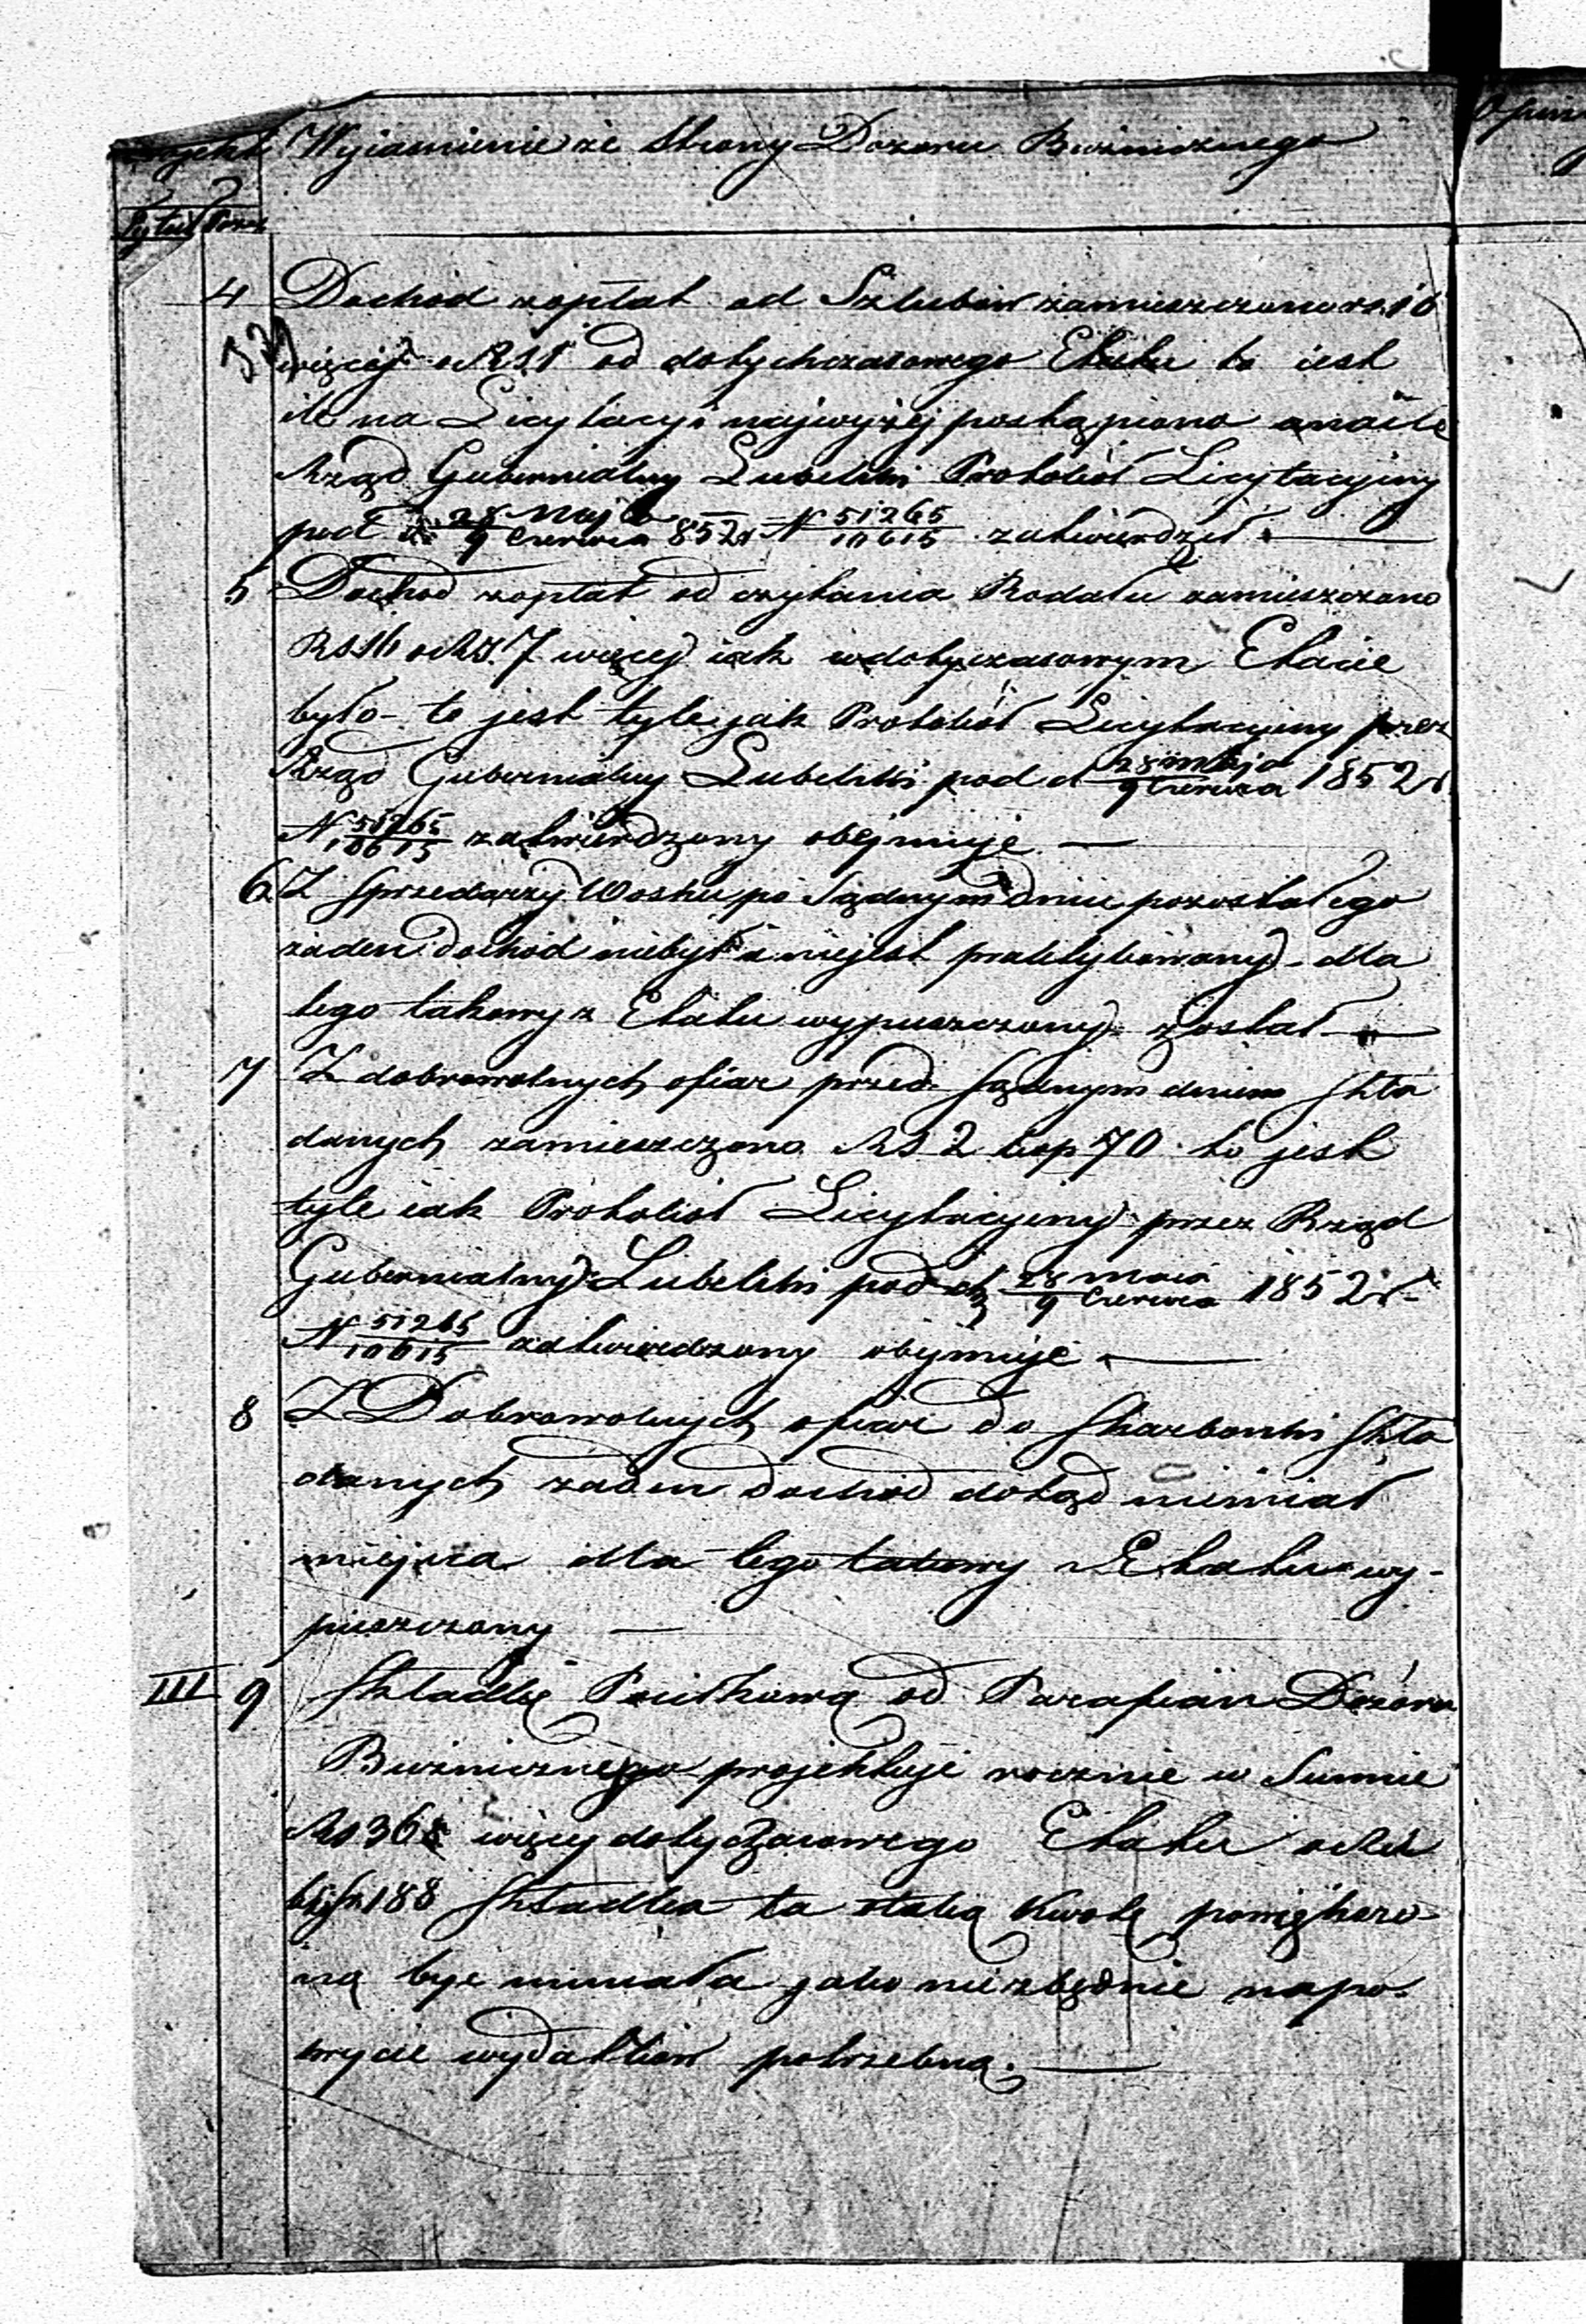 Wyiaśnienie ze Strony Dozoru Bóżnicznego
Tytuł Poz
4 Dochód z opłat od Szlubów zamieszczono rs. 10
więcej o RS 1 od dotychczasowego Etatu to iest
ile na Licytacyi najwyżej postąpiono a na ile
Rząd Gubernialny Lubelski Protokół Licytacyjny
pod d. 28 Maja / 9 Czerwca 852 r N 51265 / 10615 zatwierdził
5 Dochód z opłat od czytania Rodału zamieszczono
RS 16 o RS. 7 więcej iak w dotyczasowym Etacie
było - to jest tyle jak Protokół Licytacyjny przez
Rząd Gubernialny Lubelski pod d 28 maja / 9 Czerwca 1852 r.
N 51265 / 10615 zatwierdzony obejmuje
6 Z Sprzedarzy Wosku po Sądnym Dniu pozostałego
żaden dochód niebył i niejest praktykowany - dla
tego takowy z Etatu wypuszczony został
7 Z dobrowolnych ofiar przed Sądnym dniem Skła
danych zamieszczono RS 2 kop 70 to jest
tyle iak Protokół Licytacyjny przez Rząd
Gubernialny Lubelski pod d 28 maia / 9 Czerwca 1852 r
N 51265 / 10615 zatwierdzony obejmuje
8 Z Dobrowolnych ofiar do Skarbonki Skła
danych żaden dochód dotąd niemiał
miejsca dla tego takowy z Etatu wy-
puszczony
III 9 Składkę Posiłkową od Parafian Dozór
Bóżniczny projektuje rocznie w Summie
RS 368 więcej dotyczasowego Etatu o
188 Składka ta o taką Kwotę powiększo-
ną być musiała jako niezbędnie na po-
krycie wydatków potrzebna.